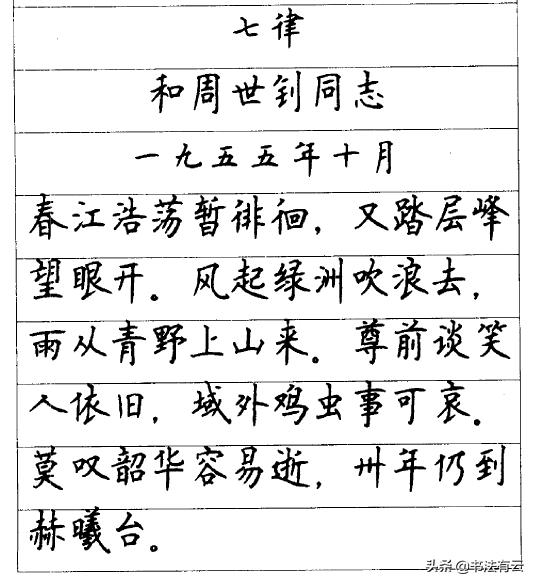 七律
和周世钊同志
一九五五年十月
春江浩荡暂徘徊，又踏层峰
望眼开。风起绿洲吹浪去，
雨从青野上山来。尊前谈笑
人依旧，域外鸡虫事可哀。
莫叹韶华容易逝，卅年仍到
赫曦台。
头条@书法有云